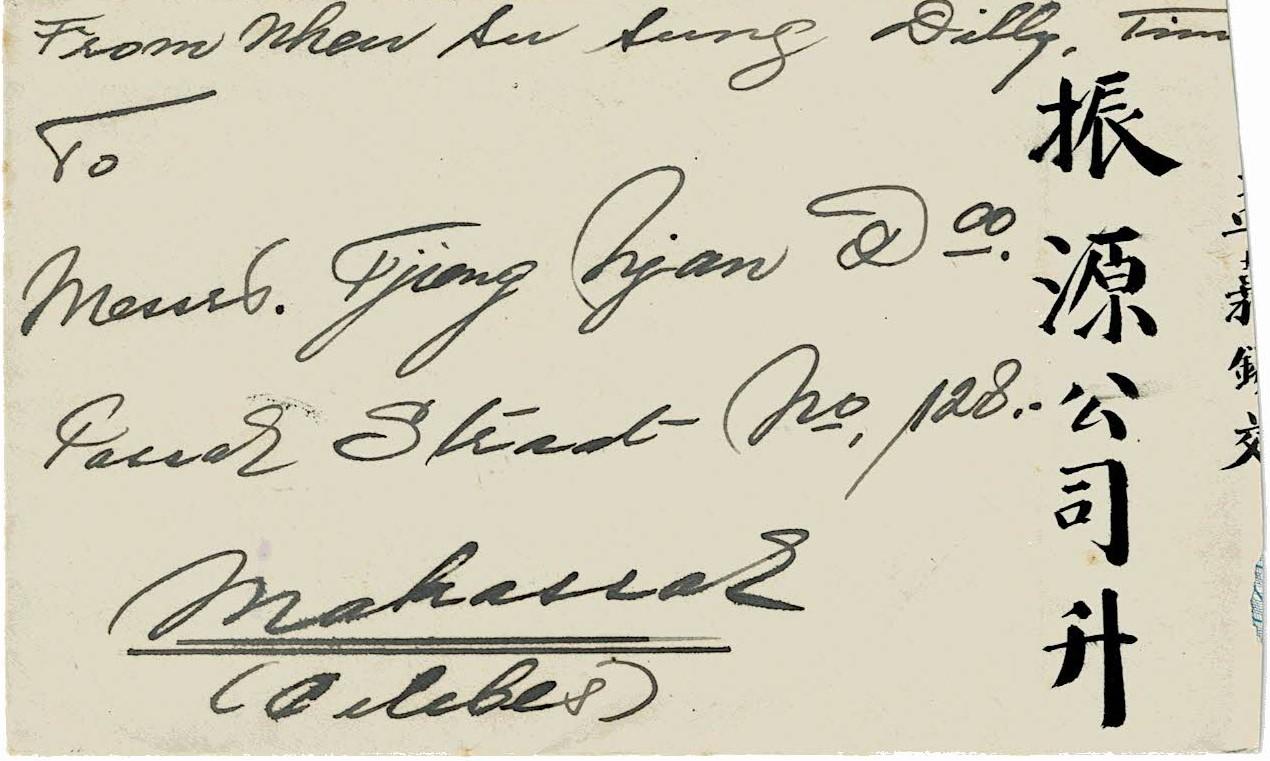 From Nheu Su Sung Dilly, Tim
To
Messrs. Tjieng Njan & Co.
Passar Straat No. 128..
Makassar
(Celebes)
振源公司升
交